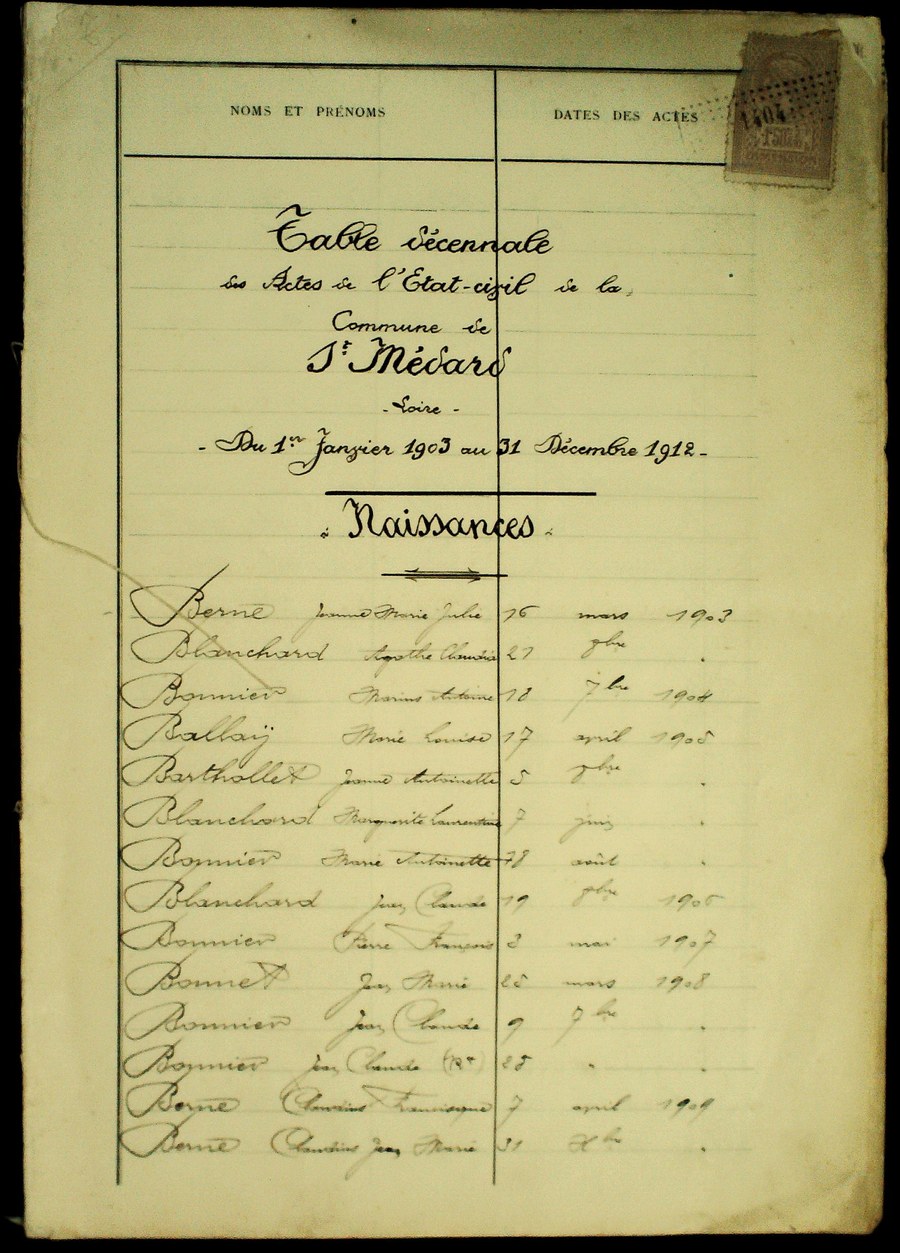 NOMS ET PRÉNOMS DATES DES ACTES
Table décennale
des Actes de l'Etat-civil de la
Commune de
St Médard
- Loire -
- Du 1er Janvier 1903 au 31 Décembre 1912 -
Naissances
Berne Jeanne Marie Julie 16 mars 1903
Blanchard Agathe Claudia 21 8bre "
Bonnier Marius Antoine 18 7bre 1904
Ballaÿ Marie Louise 17 avril 1905
Barthollet Jeanne Antoinette 5 8bre "
Blanchard Marguerite Laurentine 7 juin "
Bonnier Marie Antoinette 28 août "
Blanchard Jean Claude 19 8bre 1906
Bonnier Pierre François 3 mai 1907
Bonnet Jean Marie 25 mars 1908
Bonnier Jean Claude 9 7bre "
Bonnier Jean Claude 28 " "
Berne Claudius Francisque 7 avril 1909
Berne Claudius Jean Marie 31 Xbre "